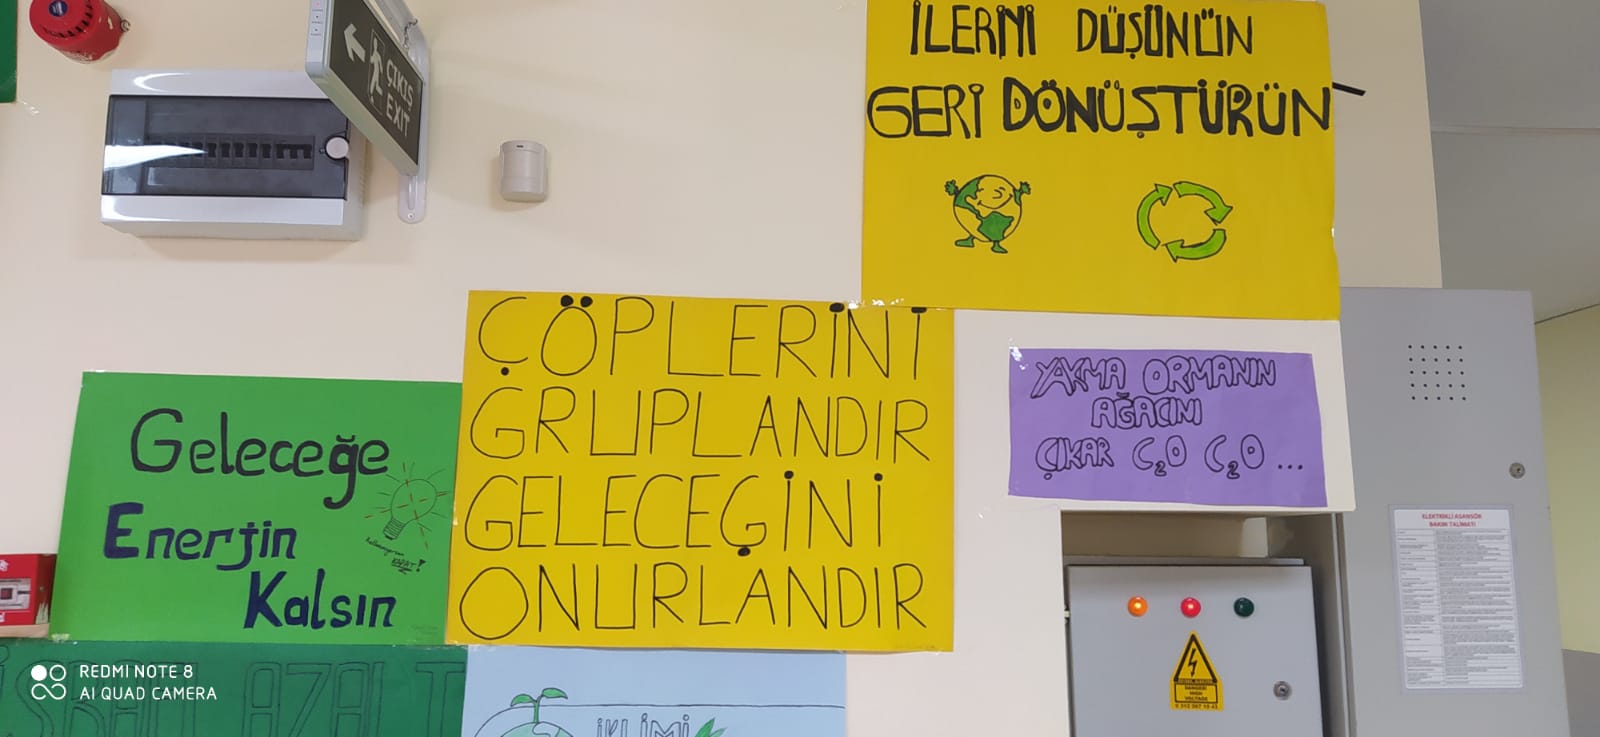 İLERİNİ DÜŞÜNÜN
GERİ DÖNÜŞTÜRÜN
ÇIKIŞ
EXIT
ÇÖPLERİNİ
GRUPLANDIR
GELECEĞİNİ
ONURLANDIR
YAKMA ORMANIN
AĞACINI
ÇIKAR C₂O C₂O ...
Geleceğe
Enerjin
Kalsın
kullanmıyorsan
KAPAT!
ELEKTRİKLİ ASANSÖR
BAKIM TALİMATI
DANGER!
HIGH
VOLTAGE
İSRAFI AZALT
İKLİMİ
REDMI NOTE 8
AI QUAD CAMERA